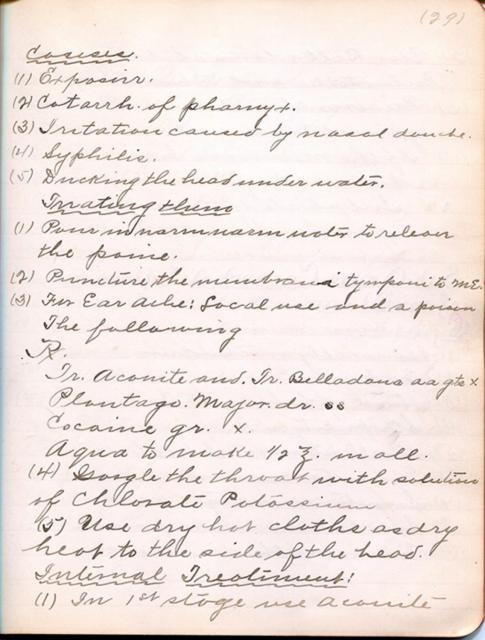 (29)
Causes.
(1) Exposure.
(2) Cotarrh. of pharnyx.
(3) Irritation caused by nasal douche.
(4) Syphilis.
(5) Ducking the head under water.
Treating them
(1) Pour in warm water to releave
the paine.
(2) Puncture the membrana tymponi to M.E.
(3) For Ear Ache: Local use and a poison
The following
Rx.
Tr. Aconite and. Tr. Belladona aa gtts x
Plantago. Major. dr. ss
Cocaine gr. x.
Aqua to make 1/2 ℥. in all.
(4) Google the throat with solution
of Chlorate Potassium
(5) Use dry hot cloths as dry
heat to the side of the head.
Internal Treatiment:
(1) In 1st stage use Aconite